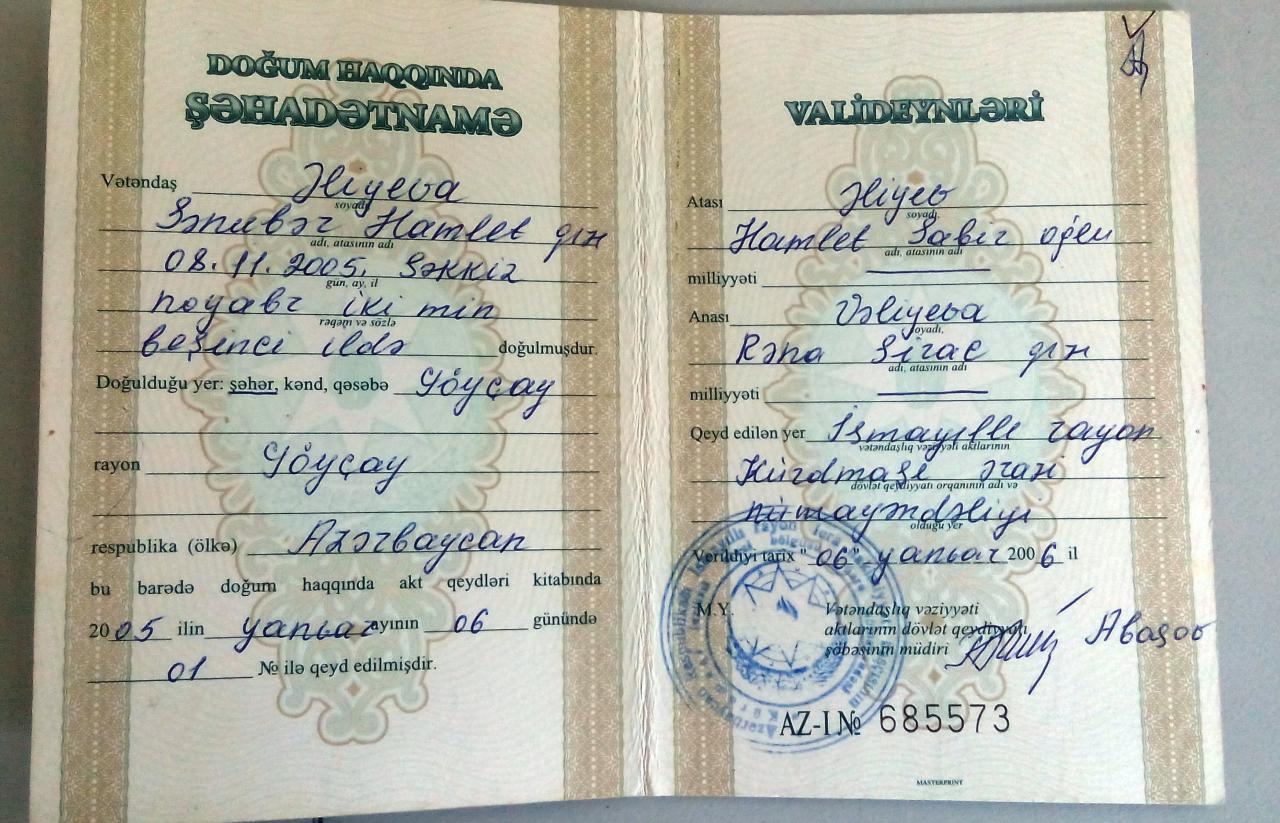 DOĞUM HAQQINDA
ŞƏHADƏTNAMƏ
Vətəndaş Əliyeva
soyadı
Sənubər Hamlet qızı
adı, atasının adı
08.11.2005. Səkkiz
gün, ay, il
noyabr iki min
rəqəm və sözlə
beşinci ildə doğulmuşdur.
Doğulduğu yer: şəhər, kənd, qəsəbə Göyçay
rayon Göyçay
respublika (ölkə) Azərbaycan
bu barədə doğum haqqında akt qeydləri kitabında
2005 ilin yanvar ayının 06 günündə
01 № ilə qeyd edilmişdir.
VALİDEYNLƏRİ
Atası Əliyev
soyadı,
Hamlet Sabir oğlu
adı, atasının adı
milliyyəti
Anası Vəliyeva
soyadı,
Rəna Sirac qızı
adı, atasının adı
milliyyəti
Qeyd edilən yer İsmayıllı rayon
vətəndaşlıq vəziyyəti aktlarının
Kürdmaşı ərazi
dövlət qeydiyyatı orqanının adı və
nümayəndəliyi
olduğu yer
Verildiyi tarix "06" yanvar 2006 il
M.Y.
Vətəndaşlıq vəziyyəti
aktlarının dövlət qeydiyyatı
şöbəsinin müdiri Abaşov
AZ-I № 685573
MASTERPRINT